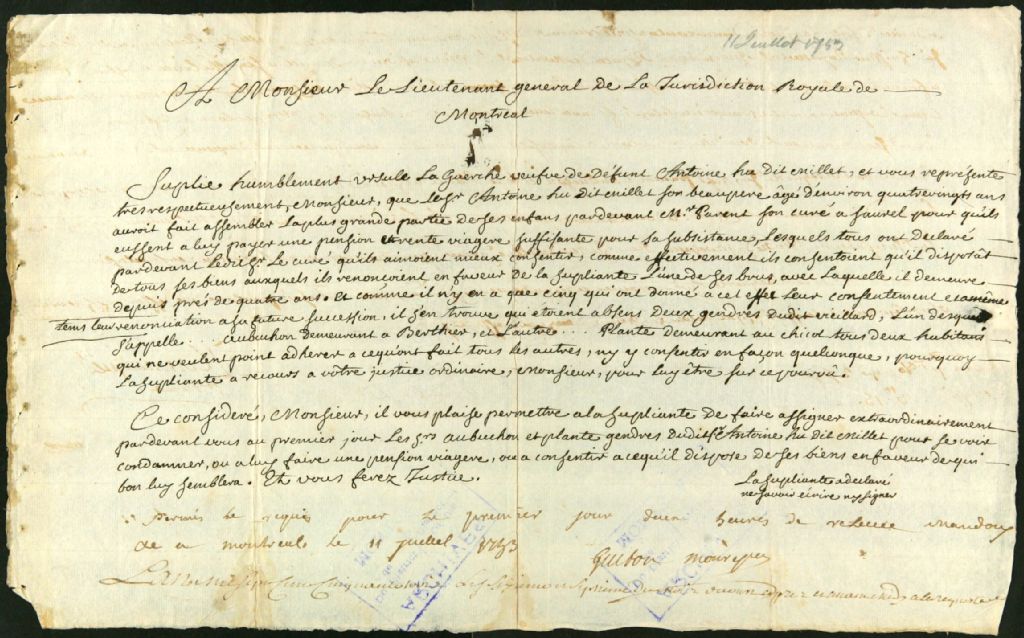 11 Juillet 1753
A Monsieur Le Lieutenant general de La Jurisdiction Royale de
Montreal
Suplie humblement Ursule La Guerche veufve de Défunt Antoine hu dit Millet, et vous represénte
tres respectueusement, Monsieur, que Antoine hu dit Millet son beaupere âgé d'environ quatrevingts ans
auroit fait assembler La plus grande partie de ses enfans pardevant Mr. Parent son curé a Saurel pour qu'ils
eussent a luy payer une pension et rente viagere suffisante pour sa subsistance, Lesquels tous ont declaré
pardevant Ledit Sr Le curé qu'ils aimoient mieux consentir, comme effectivement ils consentoient qu'il disposât
de tous ses biens auxquels ils renoncoient en faveur de la supliante L'une de ses brus, avec Laquelle il demeure
depuis prés de quatre ans. Et comme il n'y en a que cinq qui ont donné a cet effet Leur consentement et a même
tems leur renonciation a sa future succession, il s'en trouve qui etoient absens deux gendres dudit vieillard, L'un desquels
s'appelle ... aubuchon demeurant a Berthier, et L'autre ... Plante demeurant au chicot tous deux habitans
qui ne veulent point adherer a ce qu'ont fait tous les autres, ny y consentir en façon quelconque, pourquoy
La supliante a recours a vôtre justice ordinaire, Monsieur, pour luy être sur ce pourvû.
Ce consideré, Monsieur, il vous plaise permettre a la supliante de faire assigner extraordinairement
pardevant vous au premier jour Les Srs aubuchon et plante gendres dudit Sr Antoine hu dit Millet pour se voir
condamner, ou a luy faire une pension viagere, ou a consentir a ce qu'il dispose de ses biens en faveur de qui
bon luy semblera. Et vous ferez Justice.
La supliante a declaré
ne savoir écrire ny signer
Permis le requis pour le premier jour deux heures de relevée Mandons
a montreal le 11 juillet 1753
Guiton monrepos